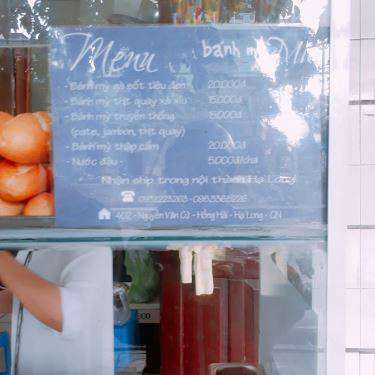 Menu bánh mì
- Bánh mỳ gà sốt tiêu đen 20.000đ
- Bánh mỳ thịt quay xá xíu 15.000đ
- Bánh mỳ truyền thống
(pate, jambon, thịt quay)
- Bánh mỳ thập cẩm 20.000đ
- Nước đậu 5.000đ/chai
Nhận ship trong nội thành Hạ Long
402 - Nguyễn Văn Cừ - Hồng Hải - Hạ Long - QN